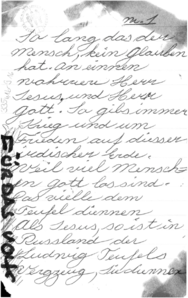 No 1
So lang das der
Mensch, kein Glauben
hat. An innen
wahren Herr
Jesus, und Herr
Gott. So gibs immer
Krieg und um
Frieden auf diesser
irdischer Erde.
Weil viel Mensch
in gott los sind.
Das vielle dem
Teufel dinnen
Als Jesus, so ist in
Russland der
Ludwig Teufels
FÜR DAS VOLK